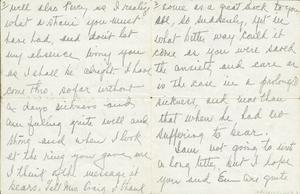 well also Lucy as I realize
what a strain you must
have had, and don't let
my absence worry you
as I shall be alright. I have
come thro. so far without
a days sickness and
am feeling quite well and
strong and when I look
at the ring you gave me
I think of the message it
bears. Tell Mrs Craig I
come as a great shock to you
all, so suddenly, yet in
what better way could it
come as you were saved
the anxiety and care as
is the case in a prolonged
sickness, and more than
that when he had no
suffering to bear.
I am not going to write
a long letter, but I hope
you and are quite